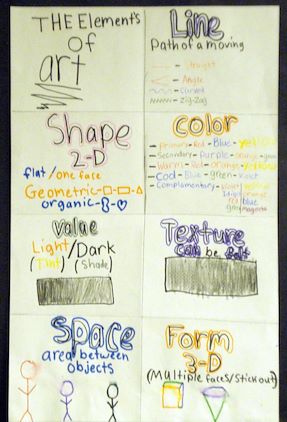 THE Elements
of
art
Line
Path of a moving
straight
Angle
curved
zig-zag
Shape
2-D
flat/one face
Geometric-
organic-
Color
Primary-Red-Blue-yellow
Secondary-purple-orange-green
Warm-Red-orange-yellow
Cool-Blue-green-violet
Complementary-violet yellow
orange
red
blue
magenta
Value
Light/Dark
(Tint) (Shade)
Texture
Can be felt
Space
area between
objects
Form
3-D
(Multiple faces/Stick out)